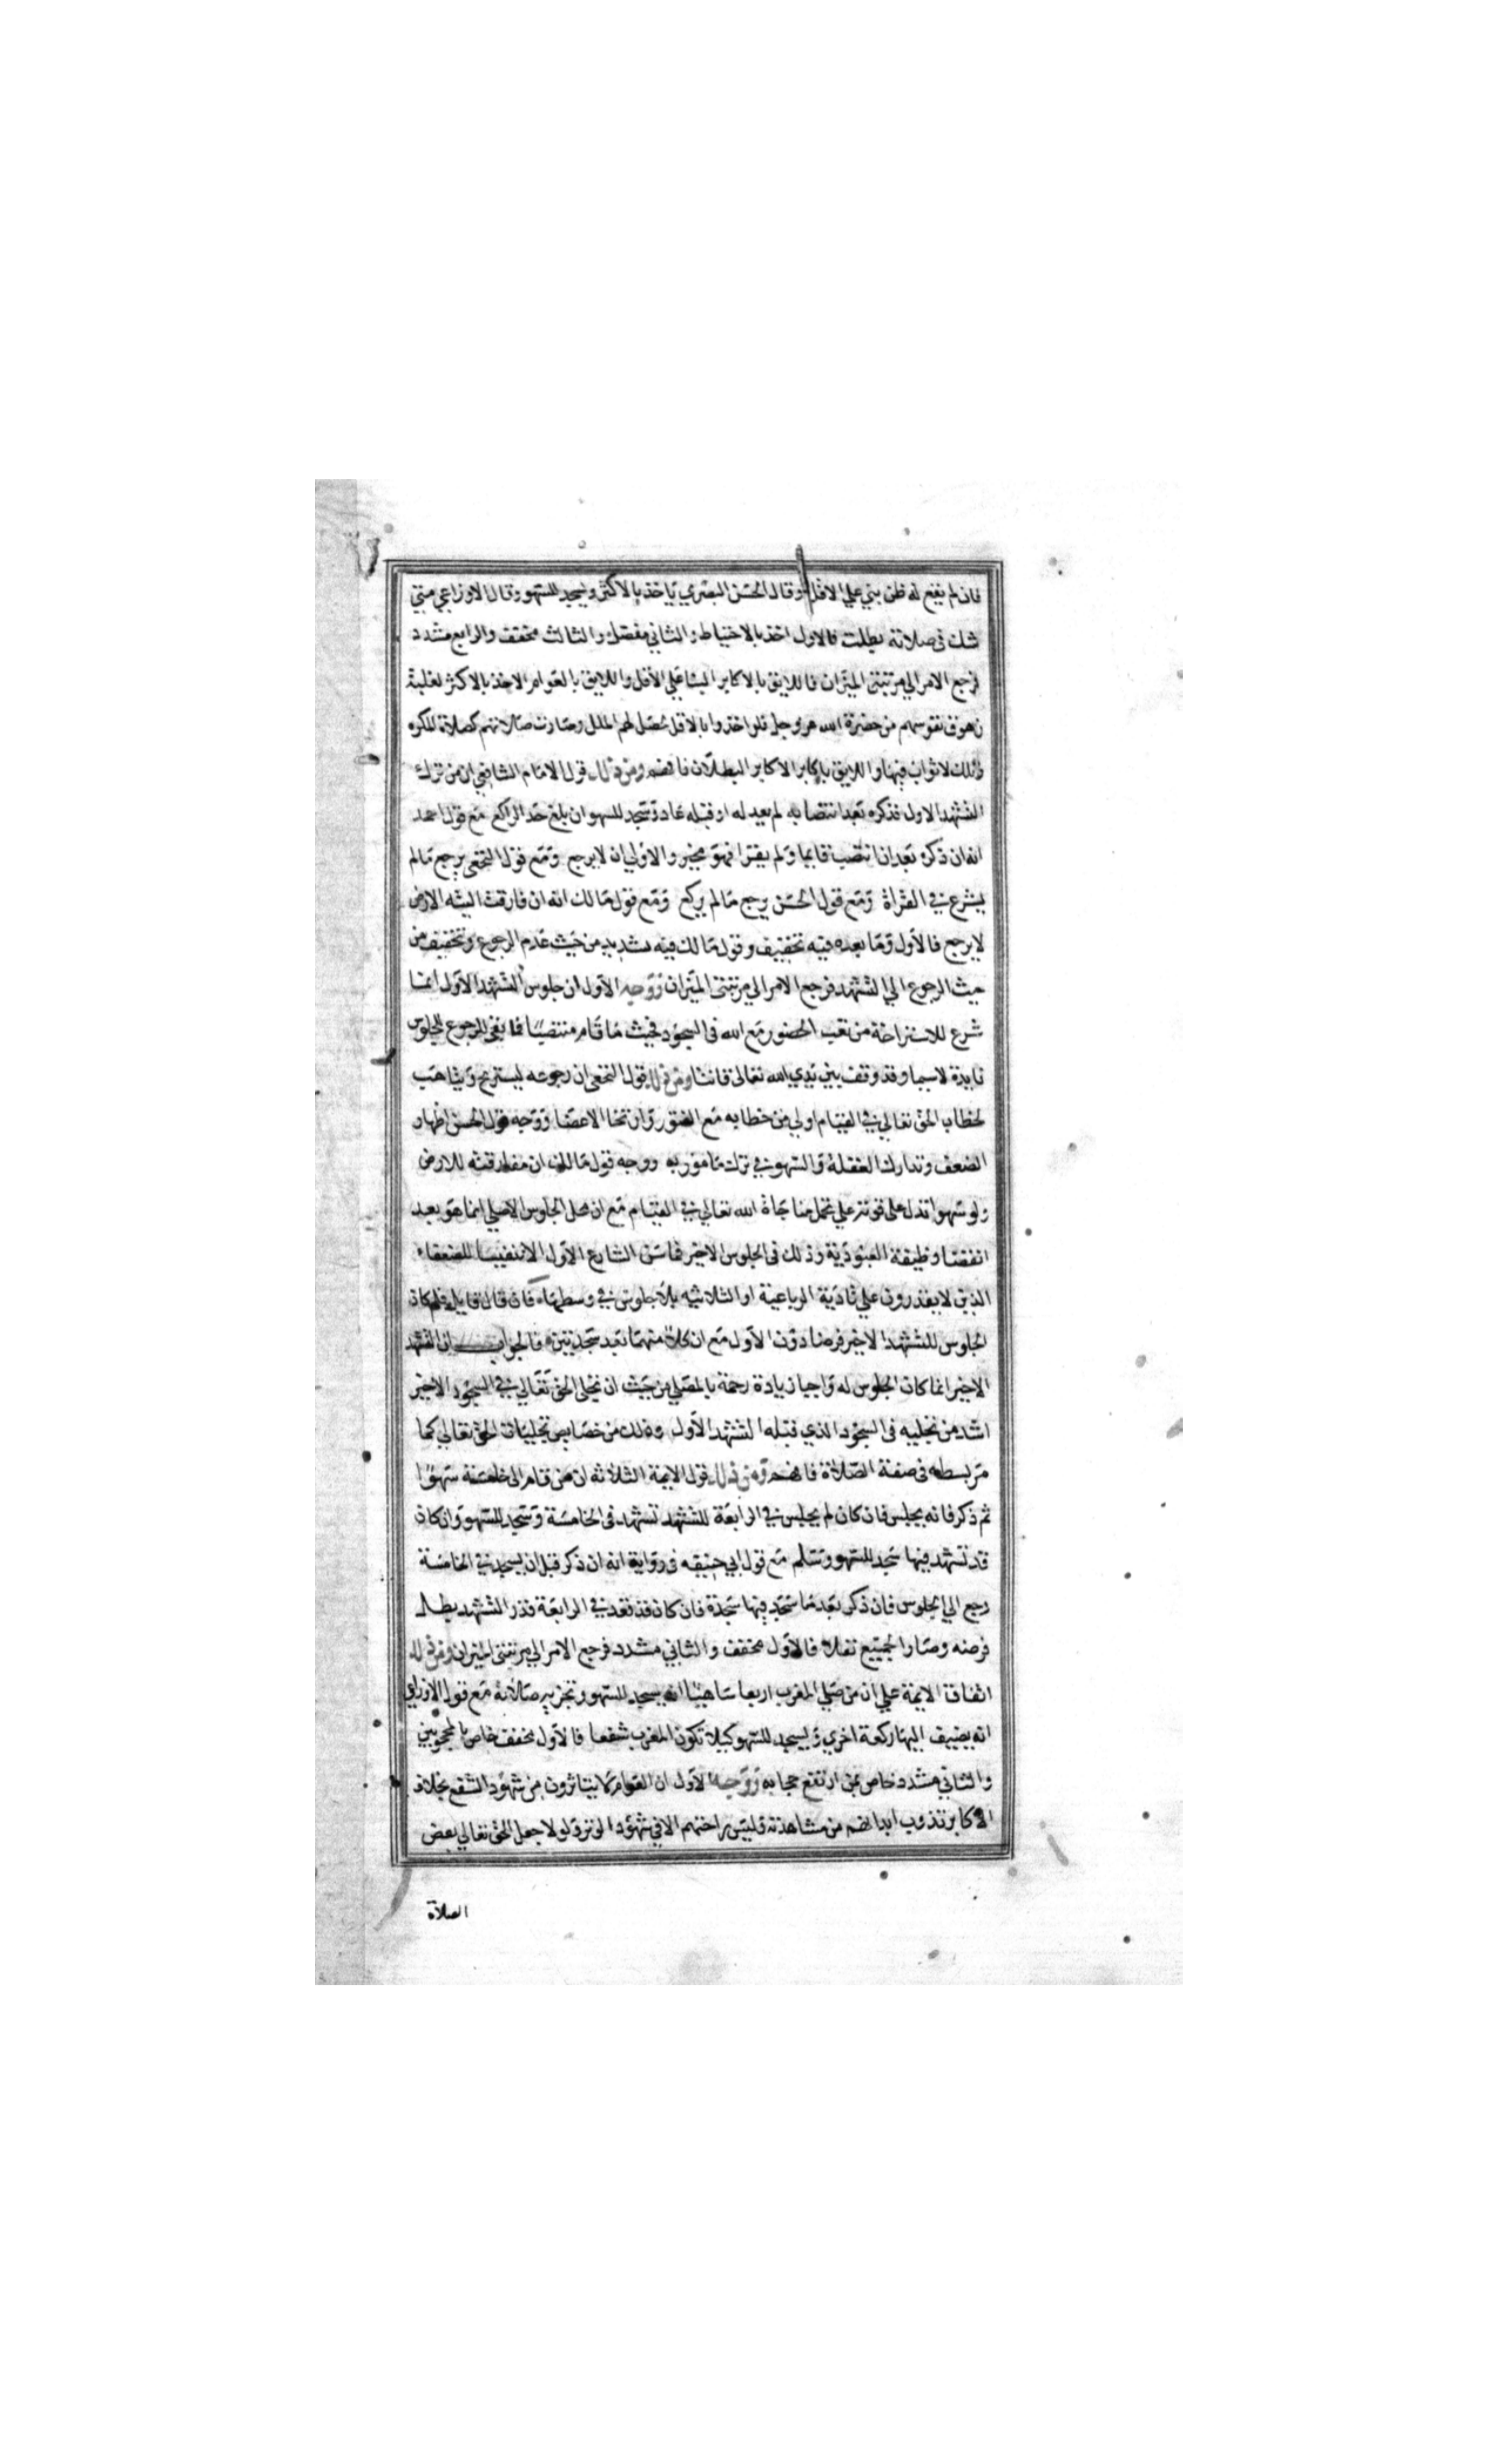 فان لم يقع له ظن بني علي الاقل وقال الحسن البصري ياخذ بالاكثر ويسجد للسهو وقال الاوزاعي متي
شك في صلاته بطلت فالاول اخذ بالاحتياط والثاني مفصل والثالث مخفف والرابع مشدد
فرجع الامر الي مرتبتي الميزان فاللايق بالاكابر البنا علي الاقل واللايق بالعوام الاخذ بالاكثر لغلبة
زهوق نفوسهم من حضرة الله عز وجل فلو اخذوا بالاقل حصل لهم الملل وصارت صلاتهم كصلاة المكره
وتلك لا ثواب فيها واللايق باكابر الاكابر البطلان فافهم ومن ذلك قول الامام الشافعي ان من ترك
التشهد الاول فذكره بعد انتصابه لم يعد له او قبله عاد وسجد للسهو ان بلغ حد الراكع مع قول احمد
انه ان ذكره بعد ان انتصب قايما ولم يقرا فهو مخير والاولي ان لا يرجع ومع قول النخعي يرجع مالم
يشرع في القراة ومع قول الحسن يرجع مالم يركع ومع قول مالك انه ان فارقت اليته الارض
لا يرجع فالاول وما بعده فيه تخفيف وقول مالك فيه تشديد من حيث عدم الرجوع وتخفيف من
حيث الرجوع الي التشهد فرجع الامر الي مرتبتي الميزان ووجه الاول ان جلوس التشهد الاول انما
شرع للاستراحة من تعب الحضور مع الله في السجود فحيث ما قام منتصبا فما بقي للرجوع للجلوس
فايدة لاسيما وقد وقف بين يدي الله تعالى ومن ذلك قول النخعي ان رجوعه ليستريح ويتاهب
لخطاب الحق تعالي في القيام اولي من خطابه مع الفتور وارتخا الاعضا ووجه قول الحسن اظهار
الضعف وتدارك الغفلة والسهو في ترك مامور به ووجه قول مالك ان مفارقته للارض
ولو سهوا تدل على قوته علي تحمل مناجاة الله تعالي في القيام مع ان محل الجلوس الاصلي انما هو بعد
انقضا وظيفة العبودية وذلك في الجلوس الاخير فما سن الشارع الاول الا تنفيسا للضعفاء
الذين لا يقدرون علي تادية الرباعية او الثلاثيه بلا جلوس في وسطها فان قال قايل فلم كان
الجلوس للتشهد الاخير فرضا دون الاول مع ان كلا منهما بعد سجدتين فالجواب ان التشهد
الاخير انما كان الجلوس له واجبا زيادة رحمة بالمصلي من حيث ان تجلى الحق تعالي في السجود الاخير
اشد من تجليه في السجود الذي قبله التشهد الاول وذلك من خصايص تجليات الحق تعالي كما
مر بسطه في صفة الصلاة فافهم ومن ذلك قول الايمة الثلاثه ان من قام الى خامسة سهوا
ثم ذكر فانه يجلس فان كان لم يجلس في الرابعة للتشهد تشهد في الخامسة وسجد للسهو وان كان
قد تشهد فيها سجد للسهو وسلم مع قول ابي حنيفه في رواية انه ان ذكر قبل ان يسجد في الخامسة
رجع الي الجلوس فان ذكر بعد ما سجد فيها سجدة فان كان قد قعد في الرابعة قدر التشهد بطل
فرضه وصار الجميع نفلا فالاول مخفف والثاني مشدد فرجع الامر الي مرتبتي الميزان ومن ذلك
اتفاق الايمة علي ان من صلي المغرب اربعا ساهيا انه يسجد للسهو وتجزيه صلاته مع قول الاوزاعي
انه يضيف اليها ركعة اخري ويسجد للسهو كيلا تكون المغرب شفعا فالاول مخفف خاص بالمحجوبين
والثاني مشدد خاص بمن ارتفع حجابه ووجه الاول ان العوام لا يتاثرون من شهود الشفع بخلاف
الاكابر تذوب ابدانهم من مشاهدته فليس راحتهم الا في شهود الوتر ولولا جعل الحق تعالي بعض
الصلاة